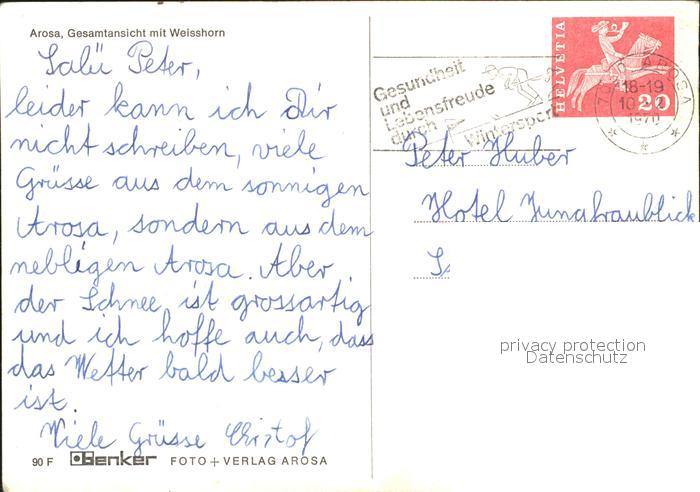 Arosa, Gesamtansicht mit Weisshorn
Salü Peter,
leider kann ich Dir
nicht schreiben, viele
Grüsse aus dem sonnigen
Arosa, sondern aus dem
nebligen Arosa. Aber
der Schnee ist grossartig
und ich hoffe auch, dass
das Wetter bald besser
ist.
Viele Grüsse Christof
90 F Benker FOTO + VERLAG AROSA
Gesundheit
und
Lebensfreude
durch
Wintersport
HELVETIA
20
AROSA
18-19
Peter Huber
Hotel Jungfraublick
privacy protection
Datenschutz